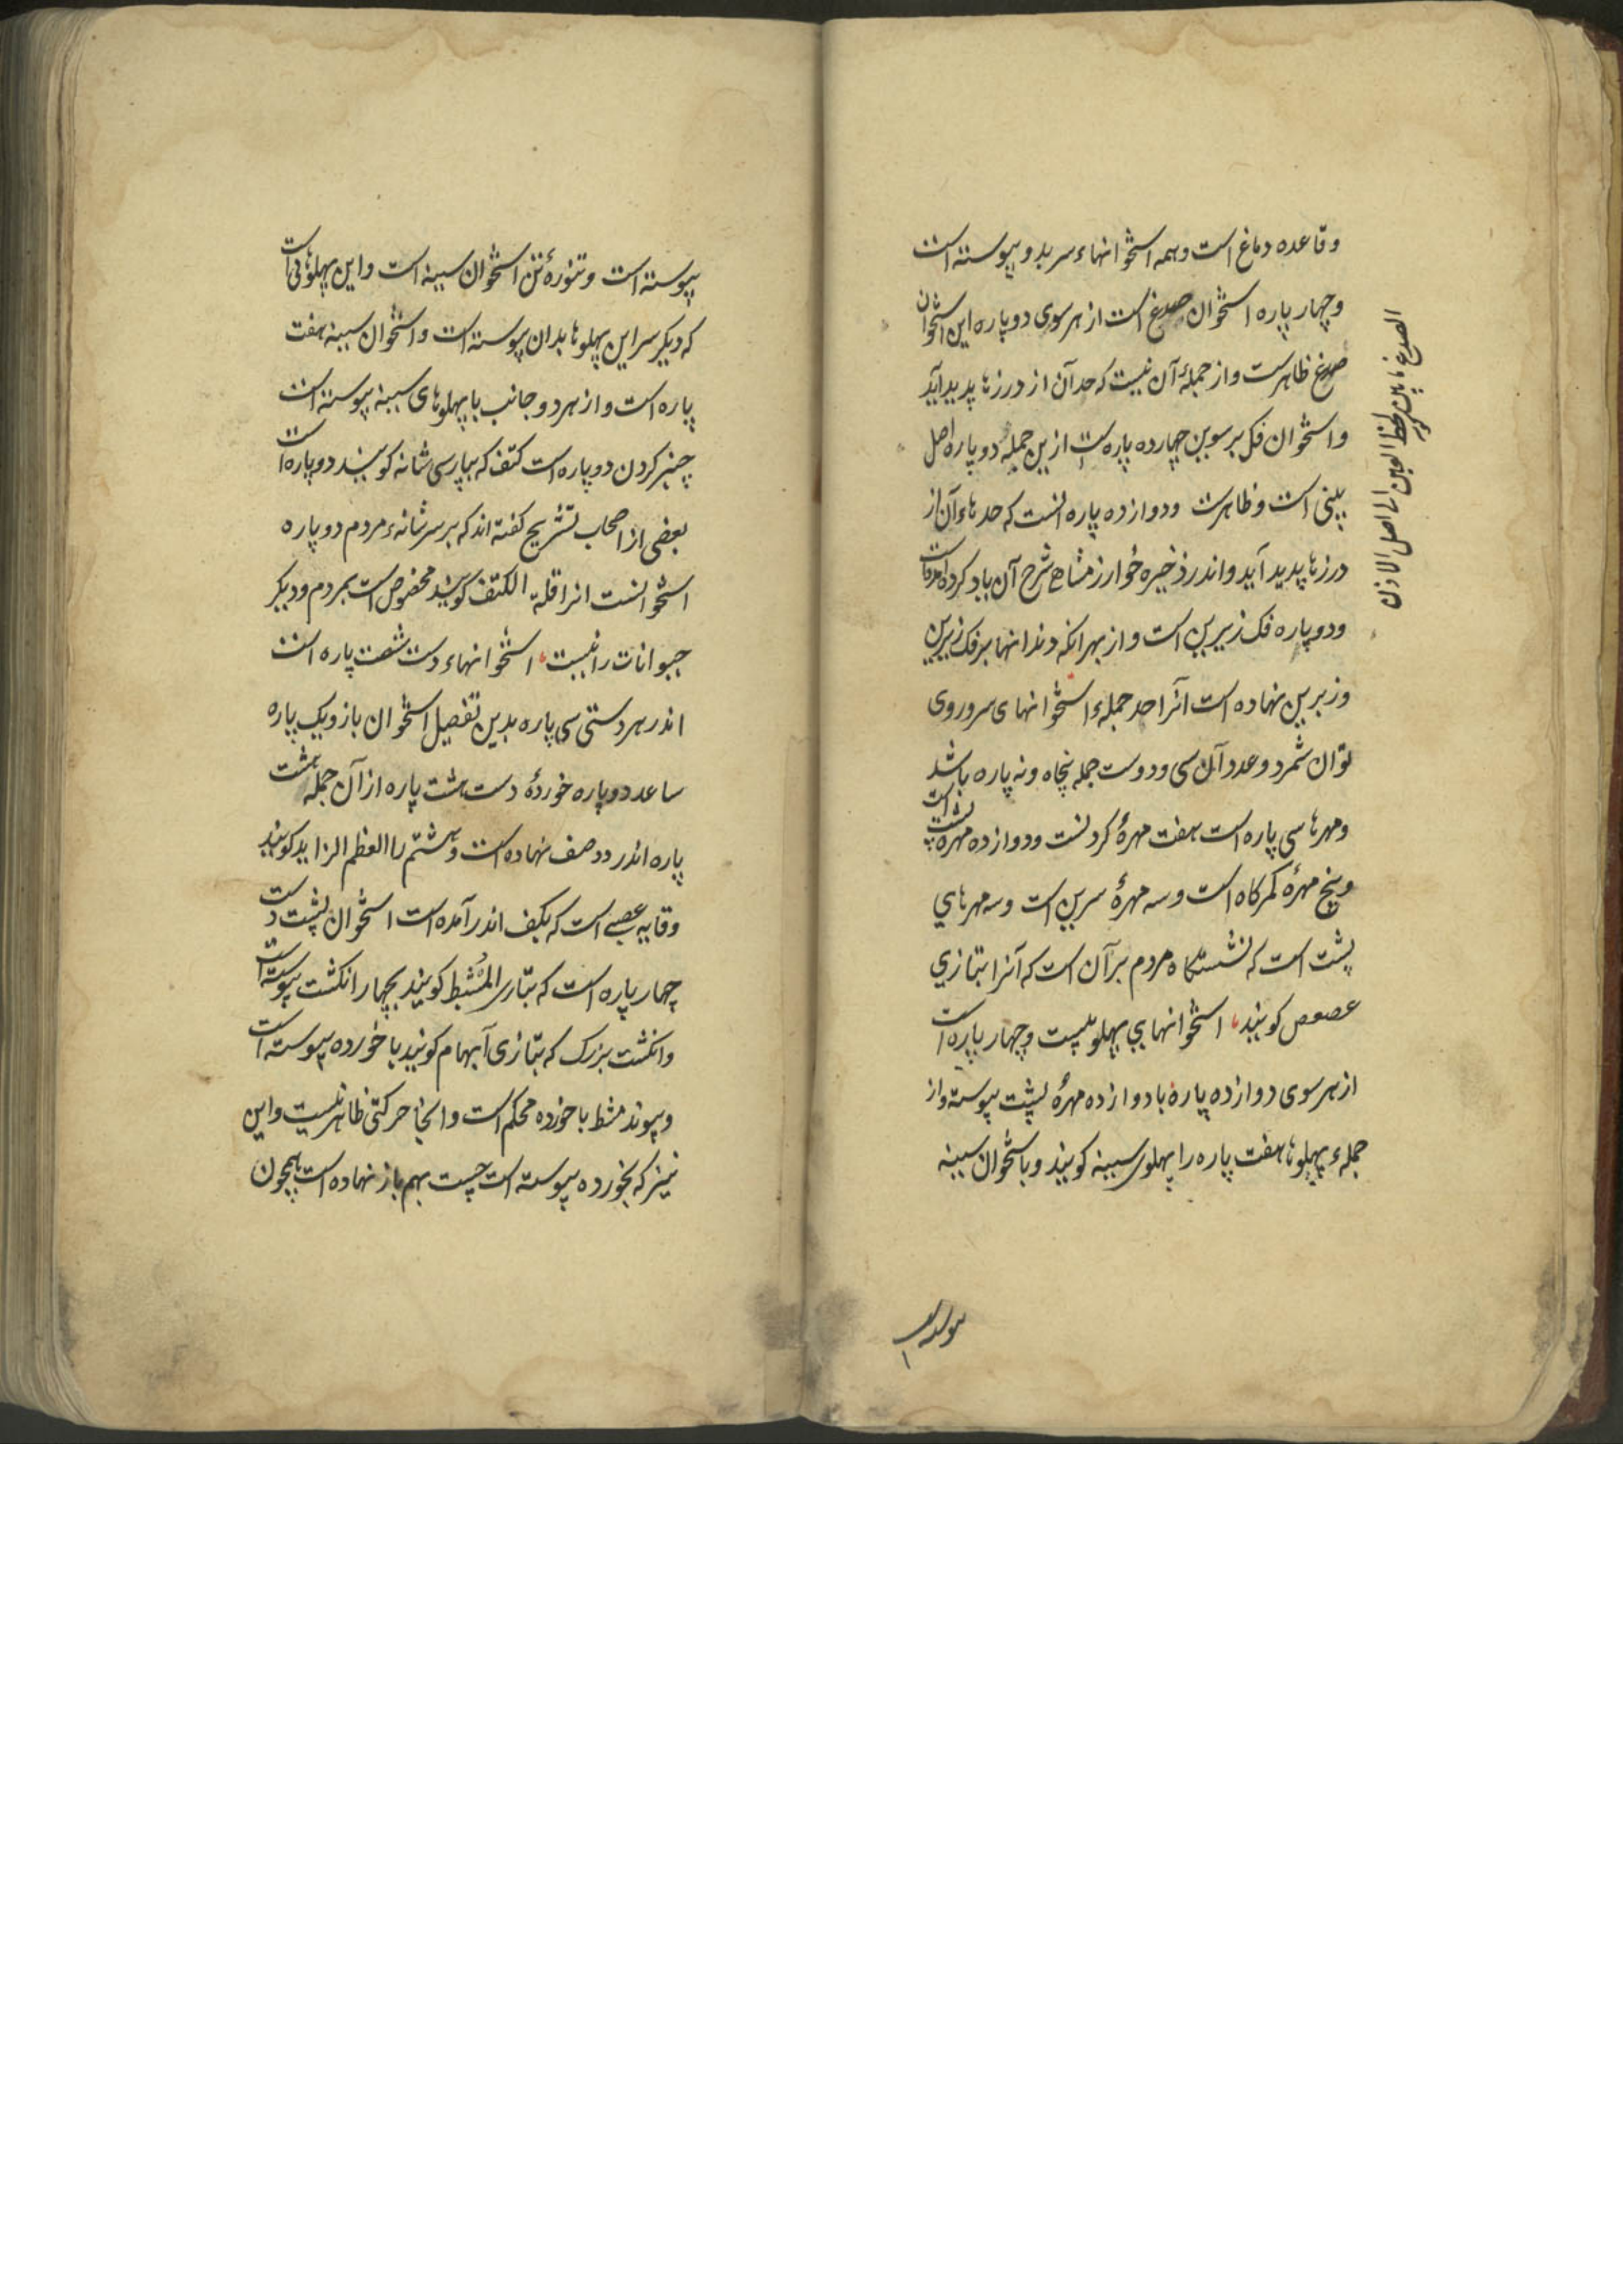 و قاعده دماغ است و همه استخوانهاء سر بدو پیوسته است
و چهار پاره استخوان صدغ است از هر سوی دو پاره این استخوان
صدغ ظاهرست و از جملهٔ آن نیست که حد آن از درزها پدید آید
و استخوان فک برسوین چهارده پاره است ازین جمله دو پاره اصل
بینی است و ظاهرست و دوازده پاره انست که حدهاء آن از
درزها پدید آید و اندر ذخیره خوارزمشاهی شرح آن یاد کرده امدست
و دو پاره فک زیرین است و از بهر انکه دندانها بر فک زیرین
و زبرین نهاده است آنرا حد جملهء استخوانهای سر و روی
توان شمرد و عدد آن سی و دوست جمله پنجاه و نه پاره باشد
و مهرها سی پاره است هفت مهرهٔ کردنست و دوازده مهره پشت است
و پنج مهرهٔ کمرکاه است و سه مهرهٔ سرین است و سه مهرهای
پشت است که نشستکاه مردم بر آن است که آنرا بتازی
عصعص کویند، استخوانهای پهلو بیست و چهار پاره است
از هر سوی دوازده پاره با دوازده مهرهٔ پشت پیوسته و از
جملهء پهلوها هفت پاره را پهلوی سینه کویند و باستخوان سینه
الصدغ ما بین لحظ العین الی اصل الاذن
پیوسته است
پیوسته است و تنورهٔ تن استخوان سینه است و این پهلوهائی است
که دیکر سر این پهلوها بدان پیوسته است و استخوان سینه هفت
پاره است و از هر دو جانب با پهلوهای سینه پیوسته است
چنبر کردن دو پاره است کتف که بپارسی شانه کویند دو پاره است
بعضی از اصحاب تشریح کفته اند که بر سر شانهء مردم دو پاره
استخوانست انرا قلة الکتف کویند مخصوص است بمردم و دیکر
حیوانات را نیست، استخوانهاء دست شصت پاره است
اندر هر دستی سی پاره بدین تفصیل استخوان بازو یک پاره
ساعد دو پاره خوردهٔ دست هشت پاره از آن جمله هشت
پاره اندر دو صف نهاده است و هشتم را العظم الزاید کویند
وقایه عصبی است که بکف اندر آمده است استخوان پشت دست
چهار پاره است که بتازی المُشط کویند بچهار انکشت پیوسته است
و انکشت بزرک که بتازی آبهام کویند با خورده پیوسته است
و پیوند مشط با خورده محکم است و انجا حرکتی ظاهر نیست و این
نیز که بخورده پیوسته است چست بهم باز نهاده است همچون